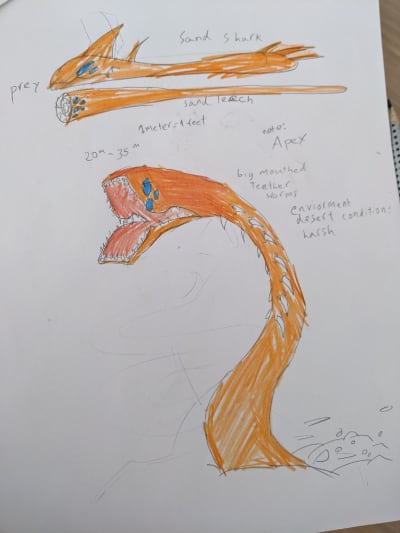 Sand shark
prey
sand leech
1meter=4 feet
note:
Apex
20m - 35m
big mouthed
teather
worms
enviorment
desert conditions
harsh